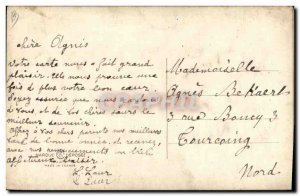 chère Agnès
Votre carte nous a fait grand
plaisir. Elle nous prouve une
fois de plus votre bon cœur.
Soyez assurée que nous gardons
à vous et de vos chères sœurs le
meilleur souvenir.
Offrez à vos chers parents nos meilleurs
vœux de bonne année, et recevez,
avec nos
affectueux baiser
MARQUE DEPOSEE
Mademoiselle
Agnès Bekaert
3 rue Boucy 3
Tourcoing
Nord